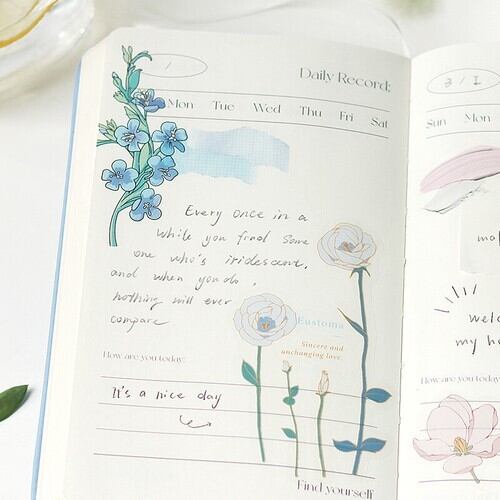 Daily Record:
Mon Tue Wed Thu Fri Sat
Every once in a
while you find some
one who's iridescent,
and when you do,
nothing will ever
compare
Eustoma
Sincere and
unchanging love.
How are you today:
It's a nice day
Find yourself
Sun Mon
welc
my he
How are you today: